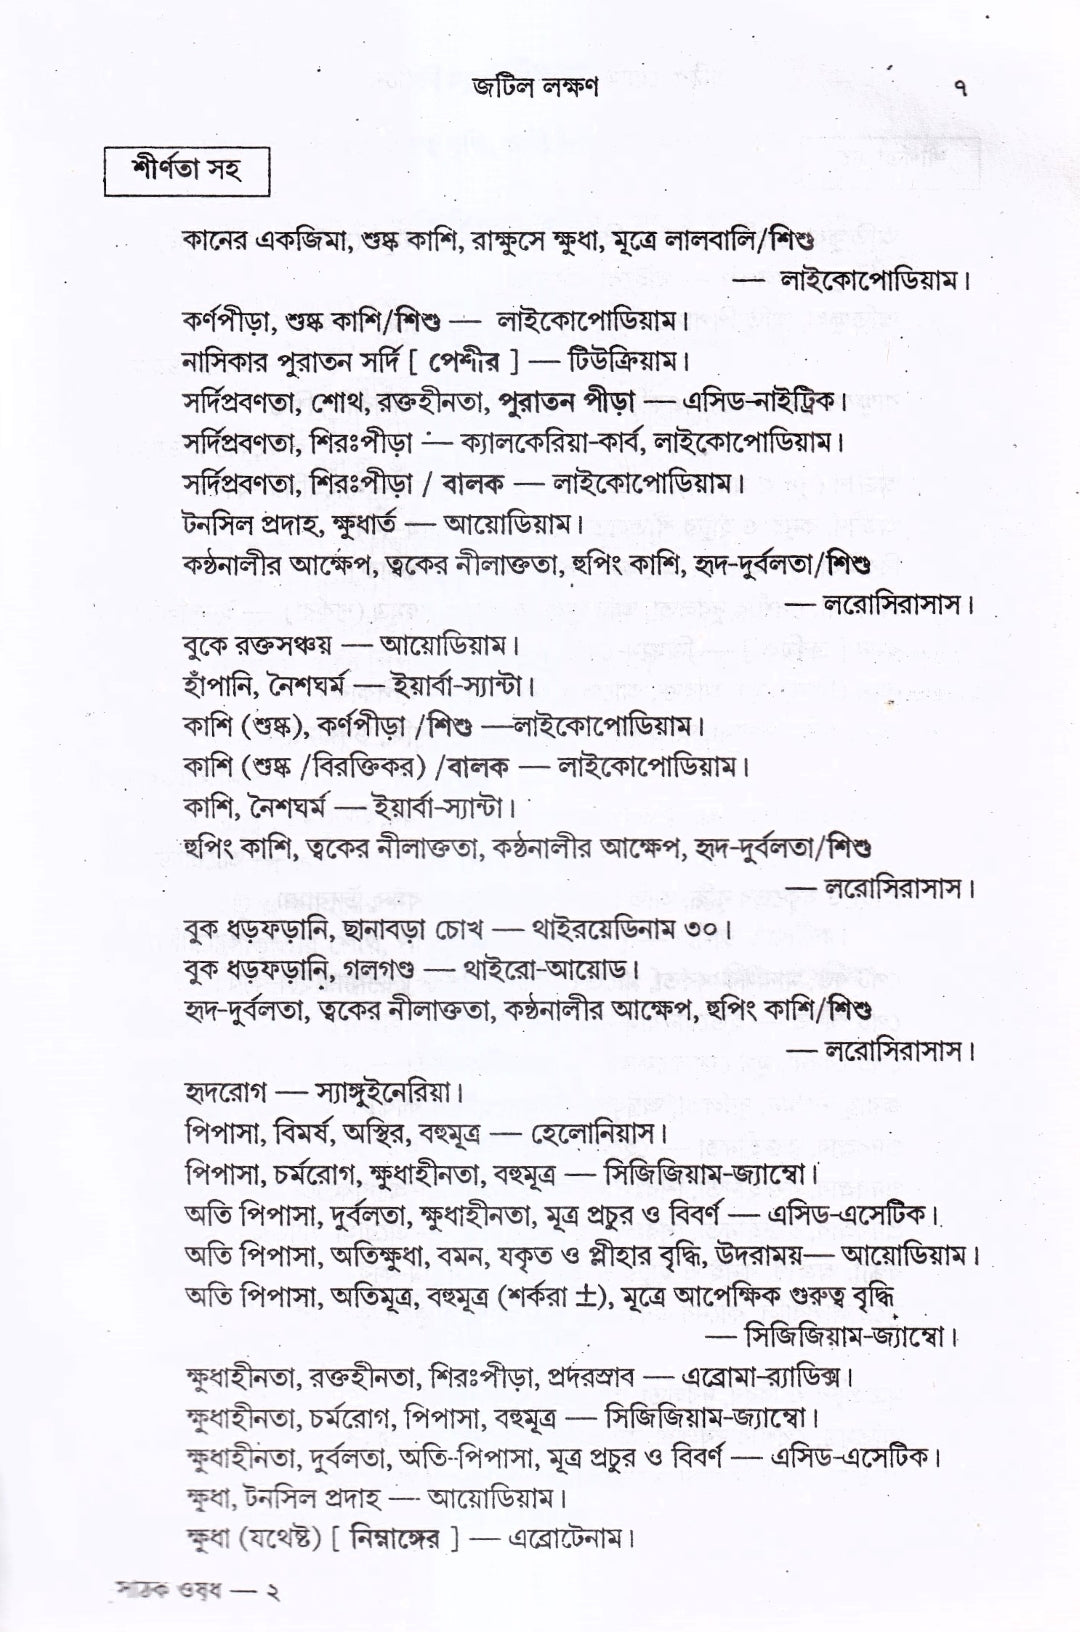 জটিল লক্ষণ
৭
শীর্ণতা সহ
কানের একজিমা, শুষ্ক কাশি, রাক্ষুসে ক্ষুধা, মূত্রে লালবালি/শিশু
— লাইকোপোডিয়াম।
কর্ণপীড়া, শুষ্ক কাশি/শিশু — লাইকোপোডিয়াম।
নাসিকার পুরাতন সর্দি [ পেশীর ] — টিউক্রিয়াম।
সর্দিপ্রবণতা, শোথ, রক্তহীনতা, পুরাতন পীড়া — এসিড-নাইট্রিক।
সর্দিপ্রবণতা, শিরঃপীড়া — ক্যালকেরিয়া-কার্ব, লাইকোপোডিয়াম।
সর্দিপ্রবণতা, শিরঃপীড়া / বালক — লাইকোপোডিয়াম।
টনসিল প্রদাহ, ক্ষুধার্ত — আয়োডিয়াম।
কন্ঠনালীর আক্ষেপ, ত্বকের নীলাক্ততা, হুপিং কাশি, হৃদ-দুর্বলতা/শিশু
— লরোসিরাসাস।
বুকে রক্তসঞ্চয় — আয়োডিয়াম।
হাঁপানি, নৈশঘর্ম — ইয়ার্বা-স্যান্টা।
কাশি (শুষ্ক), কর্ণপীড়া /শিশু —লাইকোপোডিয়াম।
কাশি (শুষ্ক /বিরক্তিকর) /বালক — লাইকোপোডিয়াম।
কাশি, নৈশঘর্ম — ইয়ার্বা-স্যান্টা।
হুপিং কাশি, ত্বকের নীলাক্ততা, কন্ঠনালীর আক্ষেপ, হৃদ-দুর্বলতা/শিশু
— লরোসিরাসাস।
বুক ধড়ফড়ানি, ছানাবড়া চোখ — থাইরয়েডিনাম ৩০।
বুক ধড়ফড়ানি, গলগণ্ড — থাইরো-আয়োড।
হৃদ-দুর্বলতা, ত্বকের নীলাক্ততা, কন্ঠনালীর আক্ষেপ, হুপিং কাশি/শিশু
— লরোসিরাসাস।
হৃদরোগ — স্যাঙ্গুইনেরিয়া।
পিপাসা, বিমর্ষ, অস্থির, বহুমূত্র — হেলোনিয়াস।
পিপাসা, চর্মরোগ, ক্ষুধাহীনতা, বহুমূত্র — সিজিজিয়াম-জ্যাম্বো।
অতি পিপাসা, দুর্বলতা, ক্ষুধাহীনতা, মূত্র প্রচুর ও বিবর্ণ — এসিড-এসেটিক।
অতি পিপাসা, অতিক্ষুধা, বমন, যকৃত ও প্লীহার বৃদ্ধি, উদরাময়— আয়োডিয়াম।
অতি পিপাসা, অতিমূত্র, বহুমূত্র (শর্করা ±), মূত্রে আপেক্ষিক গুরুত্ব বৃদ্ধি
— সিজিজিয়াম-জ্যাম্বো।
ক্ষুধাহীনতা, রক্তহীনতা, শিরঃপীড়া, প্রদরস্রাব — এব্রোমা-র‍্যাডিক্স।
ক্ষুধাহীনতা, চর্মরোগ, পিপাসা, বহুমূত্র — সিজিজিয়াম-জ্যাম্বো।
ক্ষুধাহীনতা, দুর্বলতা, অতি-পিপাসা, মূত্র প্রচুর ও বিবর্ণ — এসিড-এসেটিক।
ক্ষুধা, টনসিল প্রদাহ — আয়োডিয়াম।
ক্ষুধা (যথেষ্ট) [ নিম্নাঙ্গের ] — এব্রোটেনাম।
সঠিক ওষুধ — ২